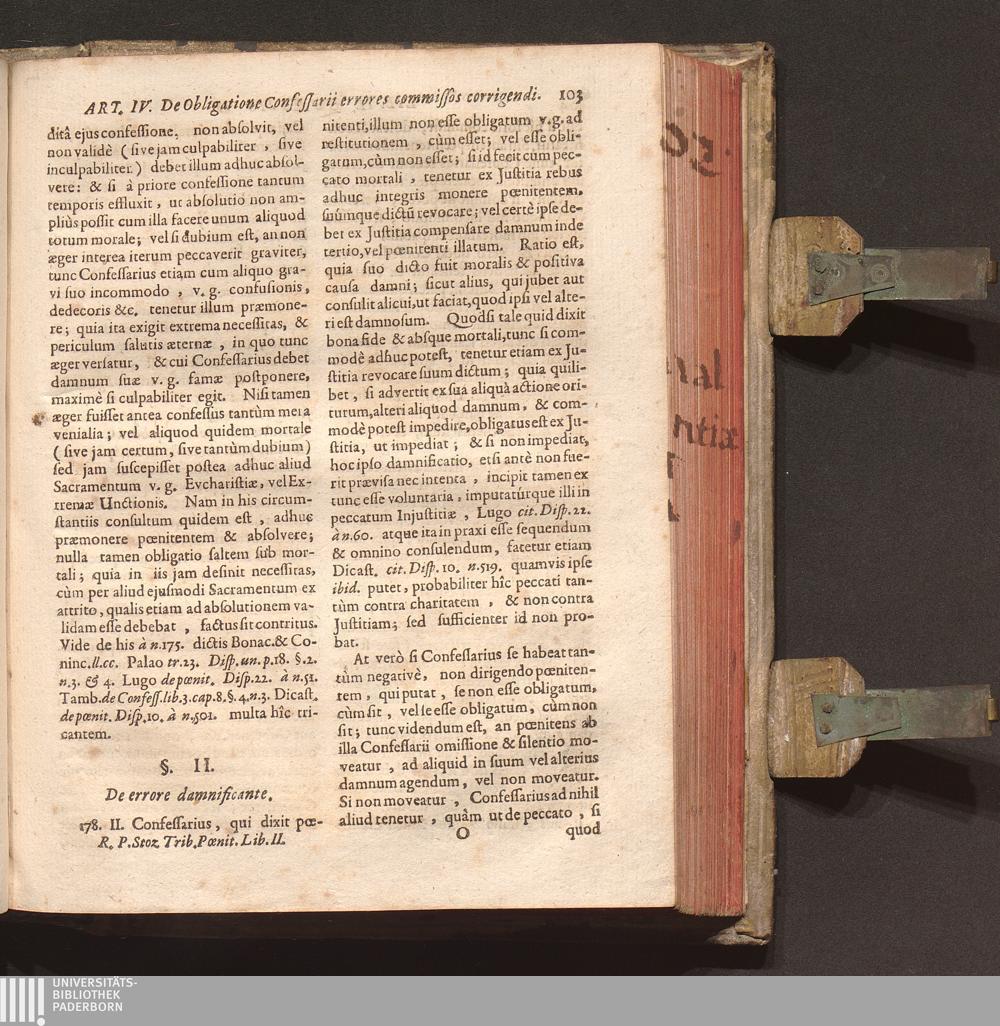 ART. IV. De Obligatione Confessarii errores commissos corrigendi. 103
ditâ ejus confessione, non absolvit, vel
non validè (sive jam culpabiliter, sive
inculpabiliter) debet illum adhuc absol-
vere: & si à priore confessione tantum
temporis effluxit, ut absolutio non am-
pliùs possit cum illa facere unum aliquod
totum morale; vel si dubium est, an non
æger interea iterum peccaverit graviter,
tunc Confessarius etiam cum aliquo gra-
vi suo incommodo, v. g. confusionis,
dedecoris &c. tenetur illum præmone-
re; quia ita exigit extrema necessitas, &
periculum salutis æternæ, in quo tunc
æger versatur, & cui Confessarius debet
damnum suæ v. g. famæ postponere,
maximè si culpabiliter egit. Nisi tamen
æger fuisset antea confessus tantùm mera
venialia; vel aliquod quidem mortale
(sive jam certum, sive tantùm dubium)
sed jam suscepisset postea adhuc aliud
Sacramentum v. g. Evcharistiæ, vel Ex-
tremæ Unctionis. Nam in his circum-
stantiis consultum quidem est, adhuc
præmonere pœnitentem & absolvere;
nulla tamen obligatio saltem sub mor-
tali; quia in iis jam desinit necessitas,
cùm per aliud ejusmodi Sacramentum ex
attrito, qualis etiam ad absolutionem va-
lidam esse debebat, factus sit contritus.
Vide de his à n. 175. dictis Bonac. & Co-
ninc. ll. cc. Palao tr. 23. Disp. un. p. 18. §. 2.
n. 3. & 4. Lugo de pœnit. Disp. 22. à n. 51.
Tamb. de Confess. lib. 3. cap. 8. §. 4. n. 3. Dicast.
de pœnit. Disp. 10. à n. 501. multa hîc tri-
cantem.
§. II.
De errore damnificante.
178. II. Confessarius, qui dixit pœ-
R. P. Stoz Trib. Pœnit. Lib. II.
nitenti, illum non esse obligatum v. g. ad
restitutionem, cùm esset; vel esse obli-
gatum, cùm non esset; si id fecit cum pec-
cato mortali, tenetur ex Justitia rebus
adhuc integris monere pœnitentem,
suúmque dictũ revocare; vel certè ipse de-
bet ex Justitia compensare damnum inde
tertio, vel pœnitenti illatum. Ratio est,
quia suo dicto fuit moralis & positiva
causa damni; sicut alius, qui jubet aut
consulit alicui, ut faciat, quod ipsi vel alte-
ri est damnosum. Quodsi tale quid dixit
bona fide & absque mortali, tunc si com-
modè adhuc potest, tenetur etiam ex Ju-
stitia revocare suum dictum; quia quili-
bet, si advertit ex sua aliquà actione ori-
turum, alteri aliquod damnum, & com-
modè potest impedire, obligatus est ex Ju-
stitia, ut impediat; & si non impediat,
hoc ipso damnificatio, etsi antè non fue-
rit prævisa nec intenta, incipit tamen ex
tunc esse voluntaria, imputatúrque illi in
peccatum Injustitiæ, Lugo cit. Disp. 22.
à n. 60. atque ita in praxi esse sequendum
& omnino consulendum, fatetur etiam
Dicast. cit. Disp. 10. n. 519. quamvis ipse
ibid. putet, probabiliter hîc peccati tan-
tùm contra charitatem, & non contra
Justitiam; sed sufficienter id non pro-
bat.
At verò si Confessarius se habeat tan-
tùm negativè, non dirigendo pœniten-
tem, qui putat, se non esse obligatum,
cùm sit, vel se esse obligatum, cùm non
sit; tunc videndum est, an pœnitens ab
illa Confessarii omissione & silentio mo-
veatur, ad aliquid in suum vel alterius
damnum agendum, vel non moveatur.
Si non moveatur, Confessarius ad nihil
aliud tenetur, quàm ut de peccato, si
O quod
UNIVERSITÄTS-
BIBLIOTHEK
PADERBORN